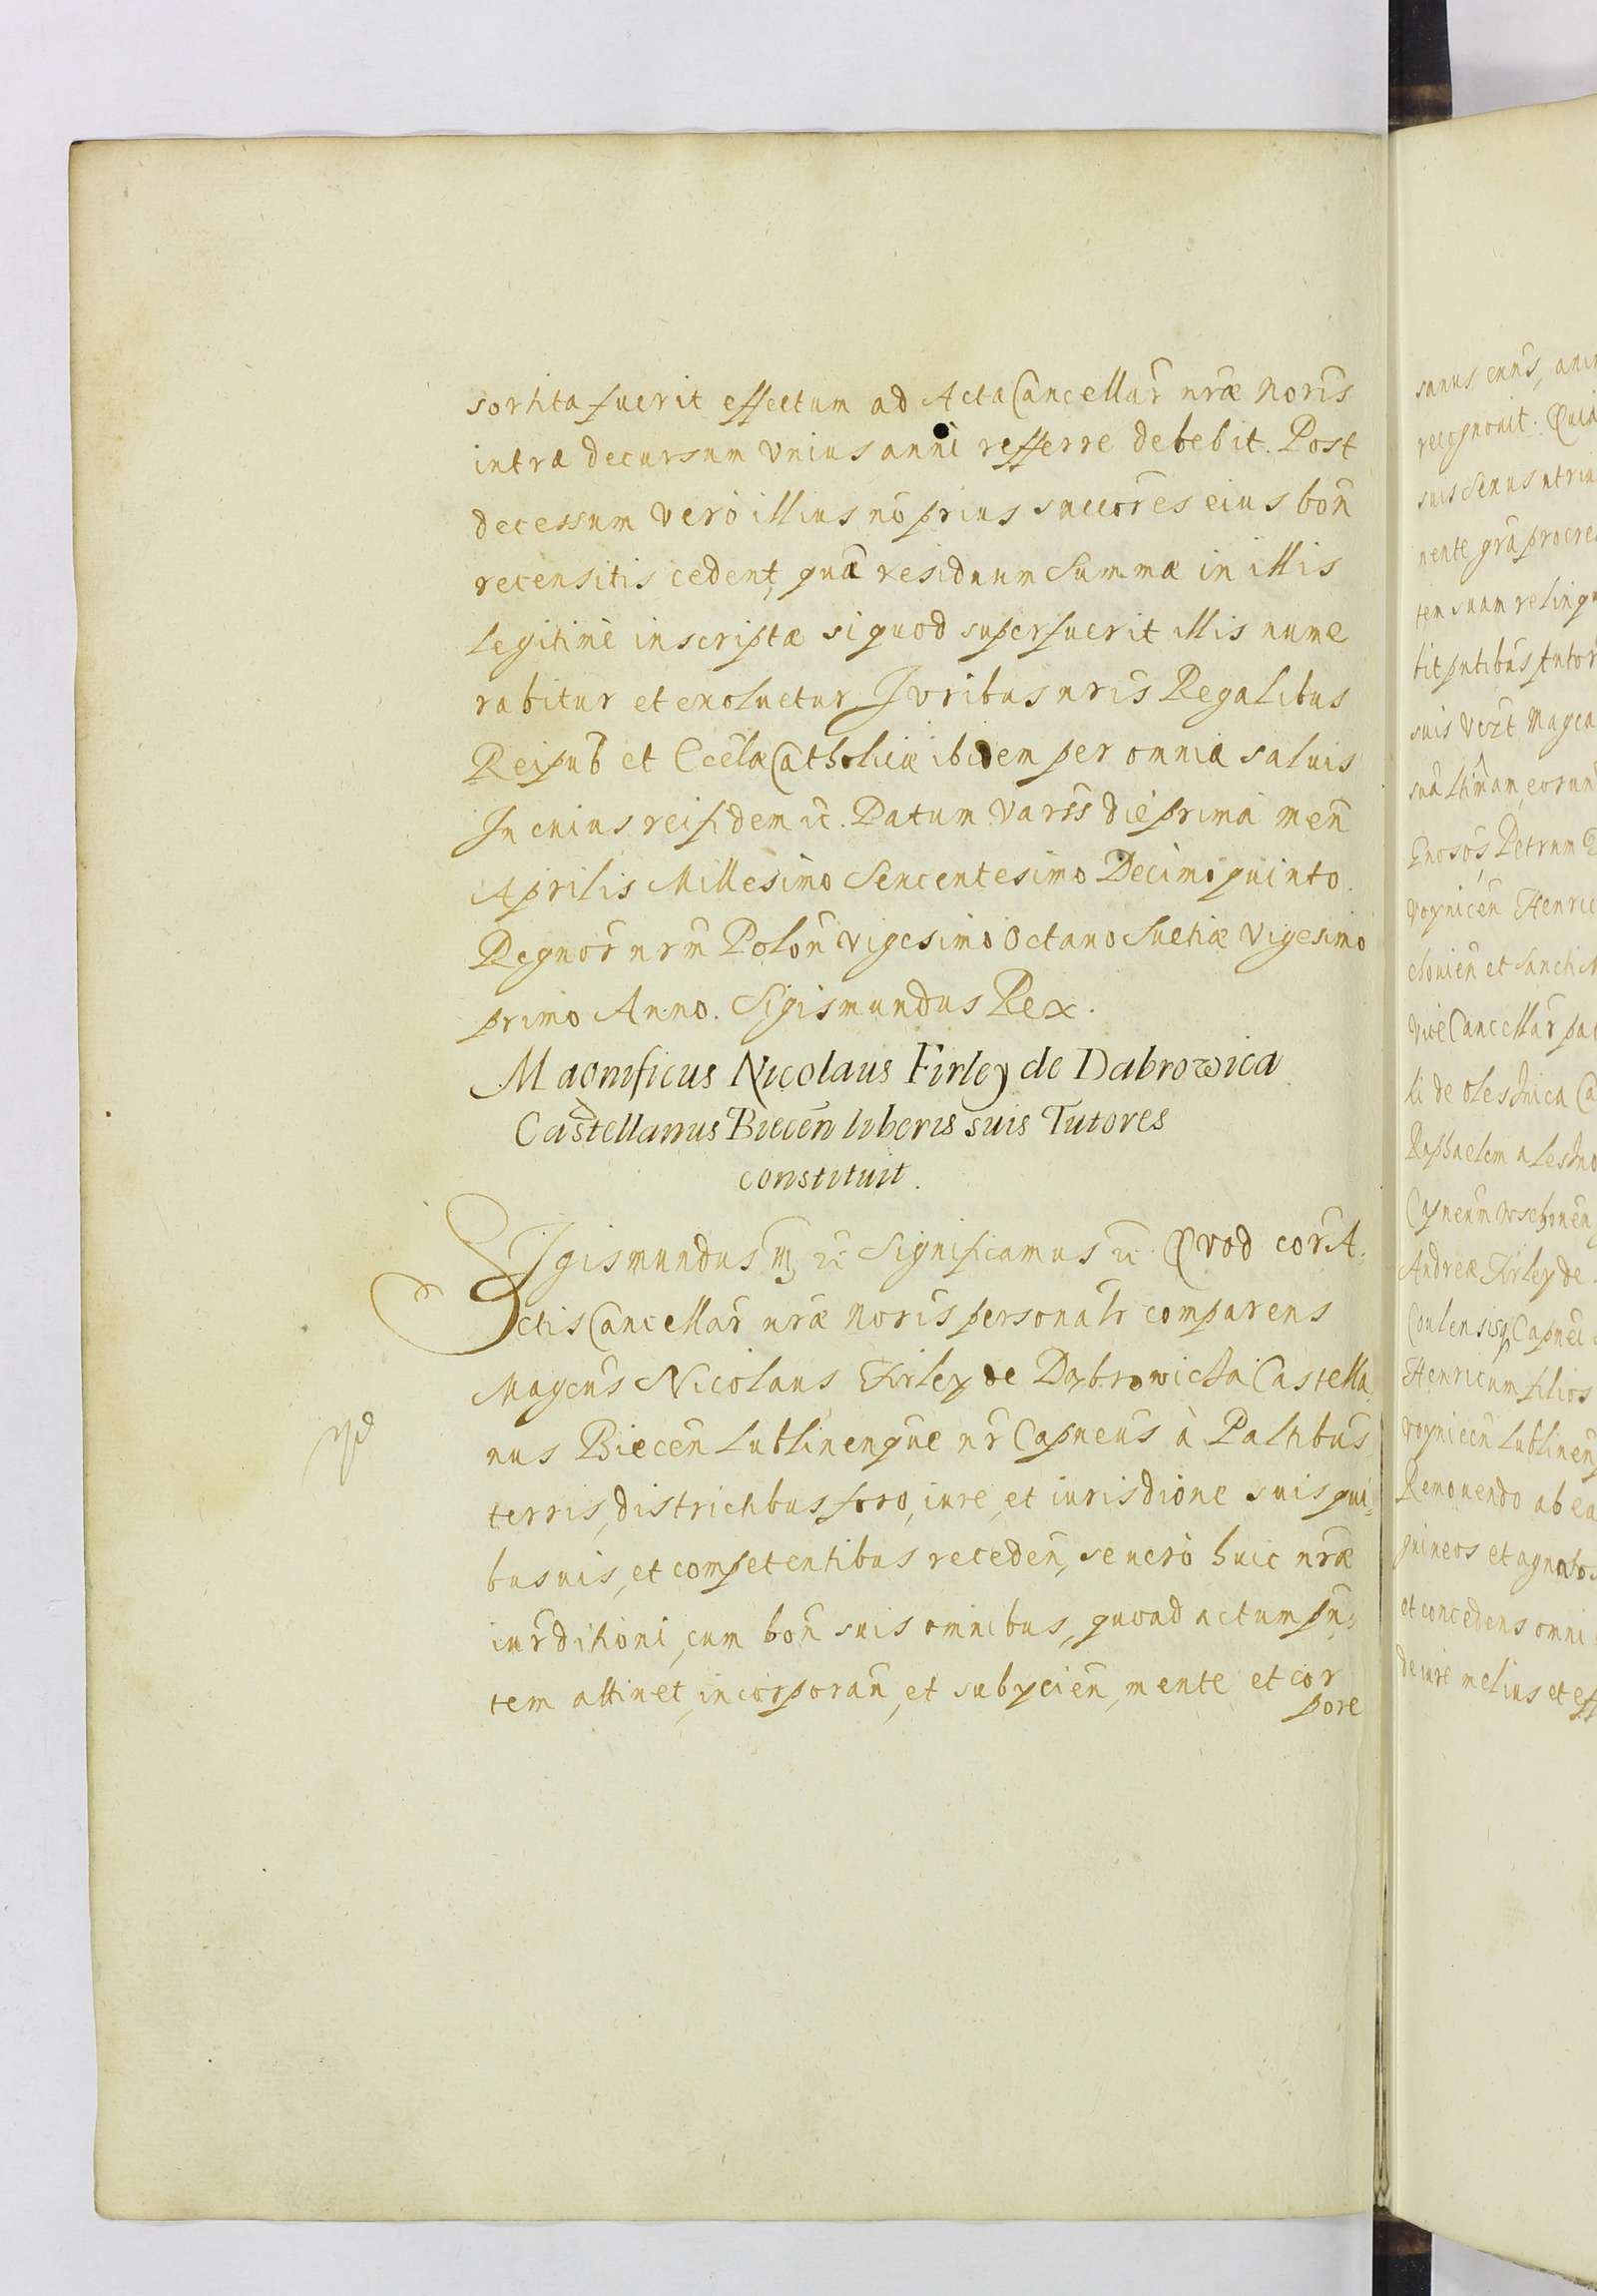 sortita fuerit effectum ad Acta Cancellar̃ nr̃æ Noris̃
intra decursum Vnius anni refferre debebit. Post
decessum Verò illius nõ prius succor̃es eius bon̄
recensitis cedent, quã residuum Summæ in illis
legitimè inscriptæ si quod superfuerit illis nume
rabitur et exoluetur, Juribus nris̃ Regalibus
Reipub̃ et Eccl̃æ Catholicæ ibidem per omnia saluis
In cuius rei fidem ꝛc. Datum Varss̃ die prima men̄
Aprilis Millesimo Sexcentesimo Decimo quinto.
Regnor̃ nrm̃ Polon̄ Vigesimo Octauo Suetiæ Vigesimo
primo Anno. Sigismundus Rex.
Magnificus Nicolaus Firley de Dabrowica
Castellanus Biecen̄ liberis suis Tutores
constituit.
SIgismundus III ꝛc Significamus ꝛc. Quod cor̃ A-
ctis Cancellar̃ nr̃æ Noris̃ personalr̃ comparens
Magcus̃ Nicolaus Firley de Dąbrowicza Castella
nus Biecen̄ Lublinenque nr̃ Capneus̃ à Palatibus̃
terris, districtibus, foro, iure, et iurisdiõne suis qui-
busuis, et competentibus receden̄, se uerò huic nr̃æ
iur̃ditioni, cum bon̄ suis omnibus, quoad actum pñ-
tem attinet, incorporan̄, et subycien̄, mente et cor
pore
sanus
recognouit. Quia
suis
nente grã procre
tem suam relinqu
bit
suis
Petrum
Voynicen̄ Henric
et Sancti
Vice Cancellar̃
li de Olesznica
Raphaelem a Leszno
Andreæ Firley de
Henricum filios
Voynicen̄ Lublinen̄
Remouendo ab ea
guineos et agnatos
et concedens omni
de iure melius et eff